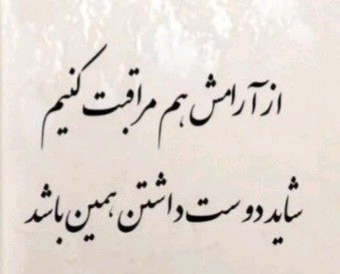 از آرامش هم مراقبت کنیم
شاید دوست داشتن همین باشد